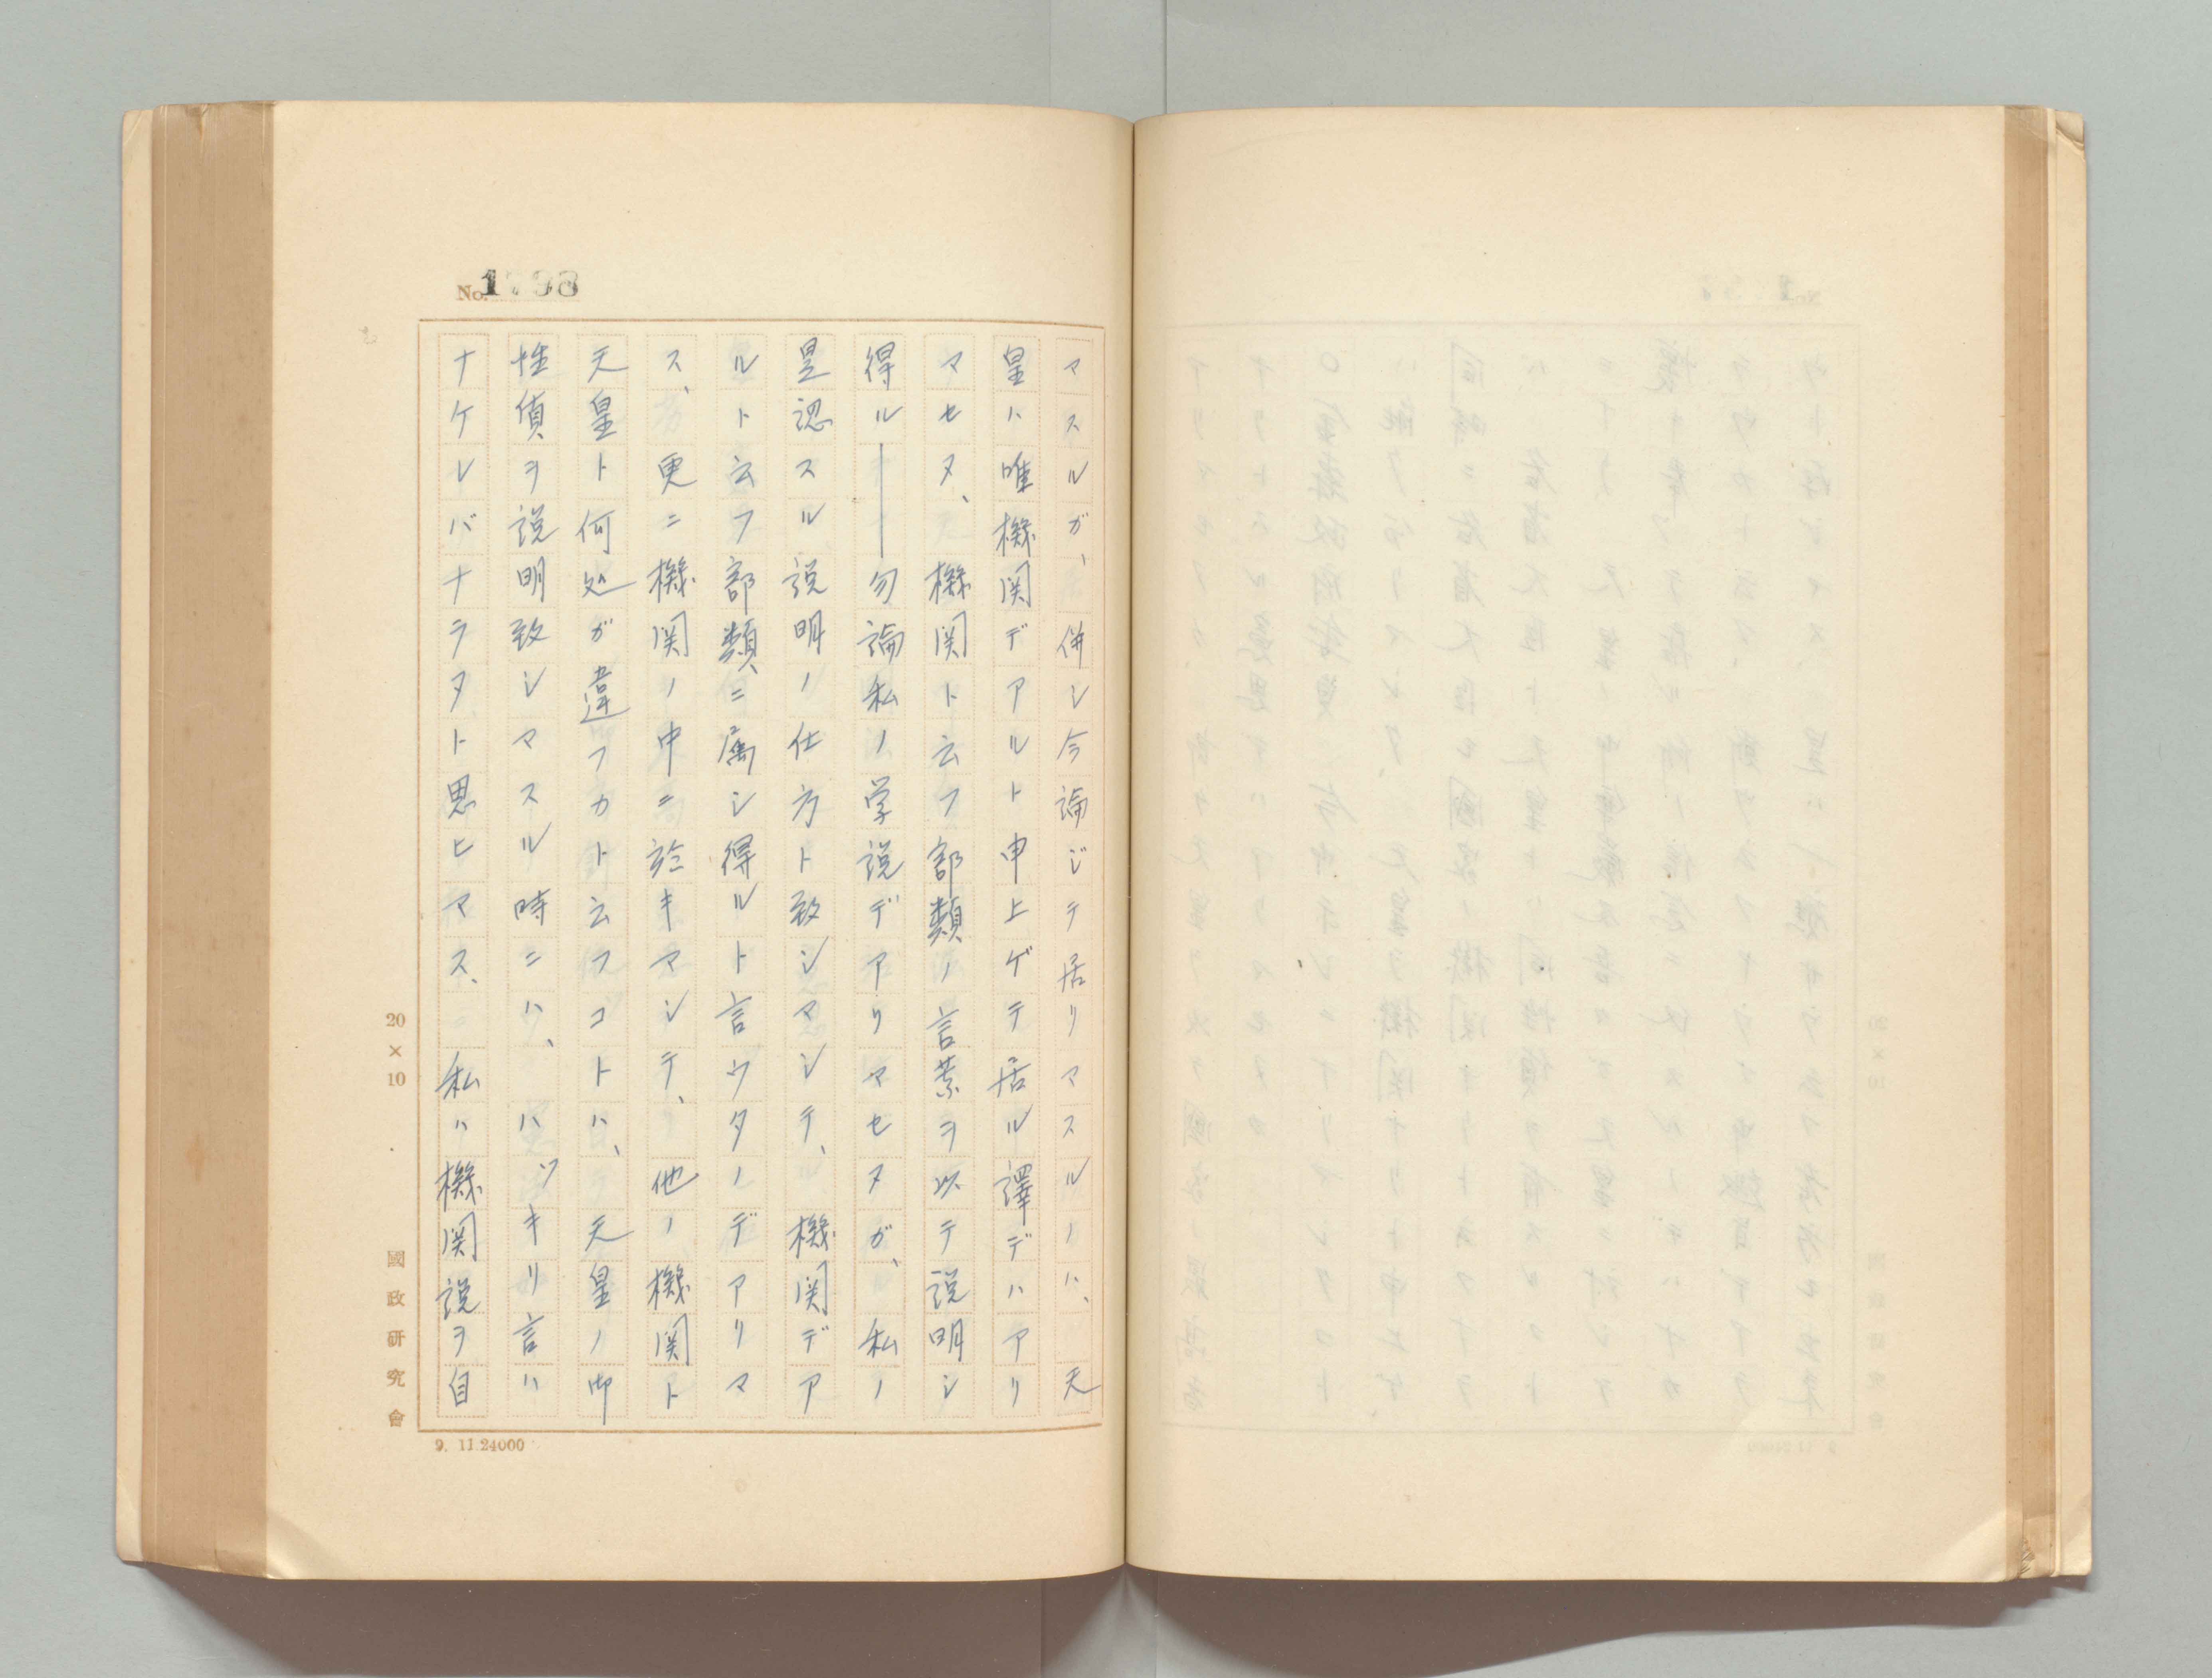 No. 1798
マスルガ、併シ今論ジテ居リマスルノハ、天
皇ハ唯機関デアルト申上ゲテ居ル譯デハアリ
マセヌ、機関ト云フ部類ノ言葉ヲ以テ説明シ
得ル――勿論私ノ学説デアリマセヌガ、私ノ
是認スル説明ノ仕方ト致シマシテ、機関デア
ルト云フ部類ニ属シ得ルト言ウタノデアリマ
ス、更ニ機関ノ中ニ於キマシテ、他ノ機関ト
天皇ト何処ガ違フカト云フコトハ、天皇ノ御
性質ヲ説明致シマスル時ニハ、ハツキリ言ハ
ナケレバナラヌト思ヒマス、私ハ機関説ヲ自
20×10
國政研究會
9. 11.24000